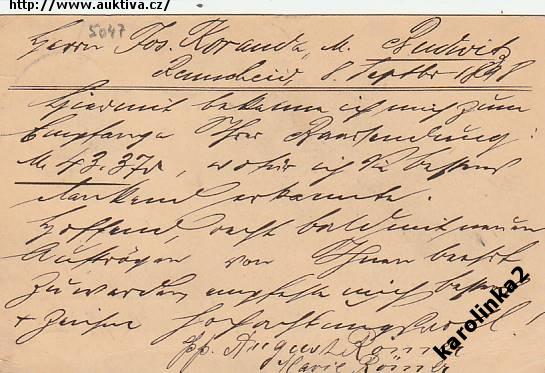 http://www.auktiva.cz/
5047
Herrn Jos. Koranda, M. Budwitz
Remscheid, 8. Septbr 1898
Hiermit bekenne ich mich zum
Empfange Ihrer Baarsendung:
M 43.37, wofür ich Sie bestens
dankend erkannte.
Hoffend, recht bald mit neuen
Aufträgen von Ihnen beehrt
zu werden, empfehle mich bestens
+ zeichne Hochachtungsvoll!
pp. August Römer
Marie Römer
karolinka2